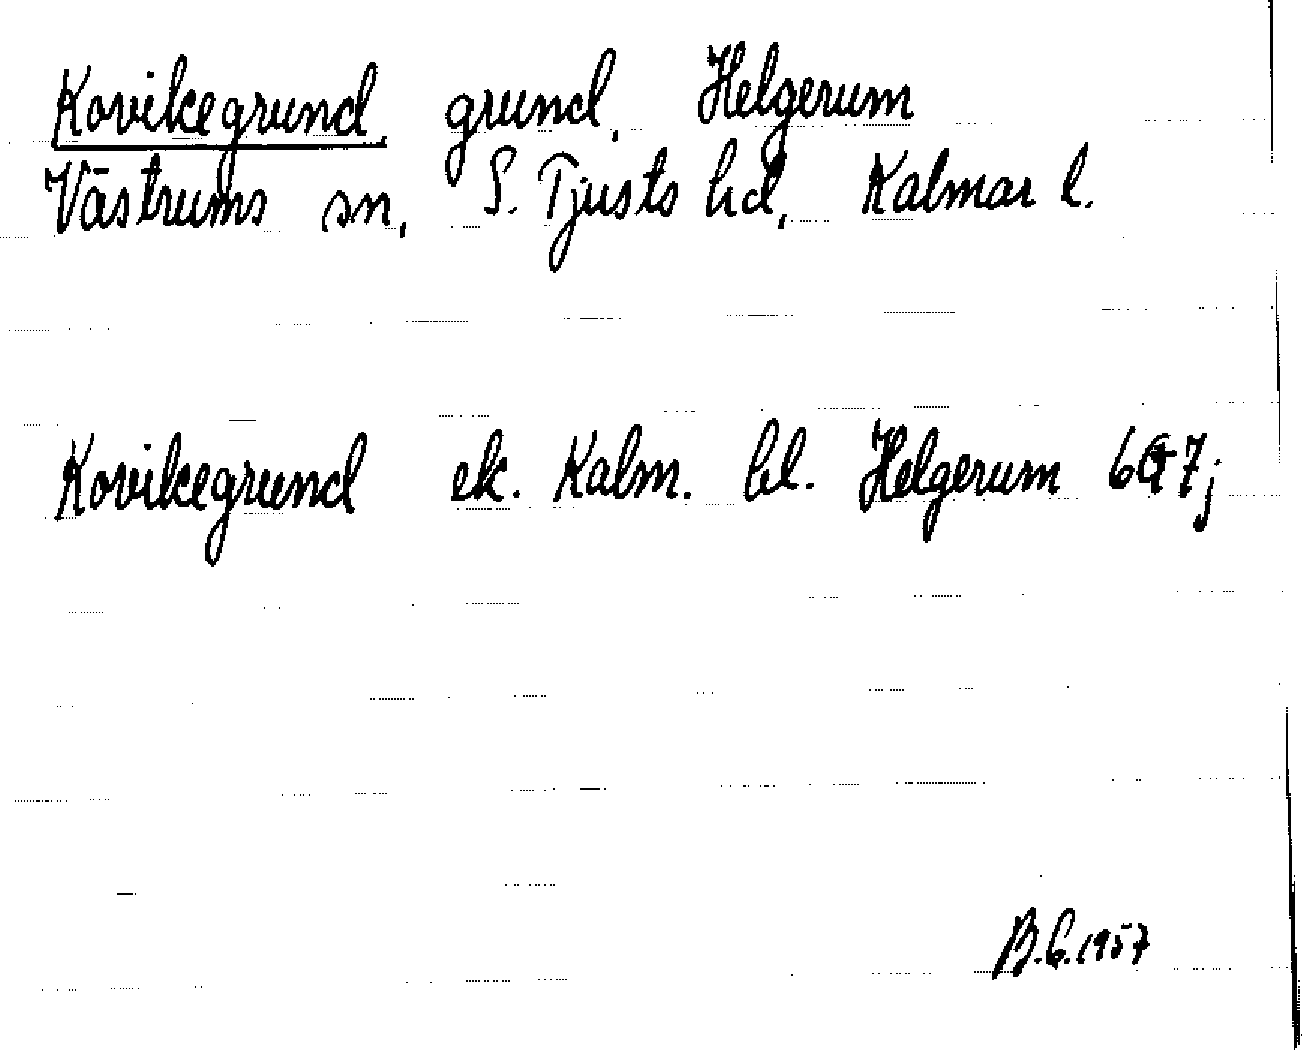 Korvikegrund, grund, Helgerum
Västrums sn, S. Tjusts hd, Kalmar l.
Korvikegrund ek. Kalm. bl. Helgerum 6G7j
B.G. 1957